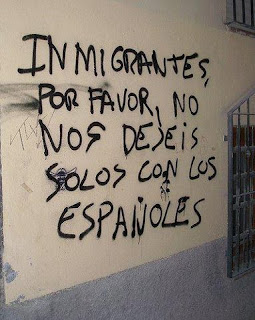 INMIGRANTES,
POR FAVOR, NO
NOS DEJEIS
SOLOS CON LOS
ESPAÑOLES